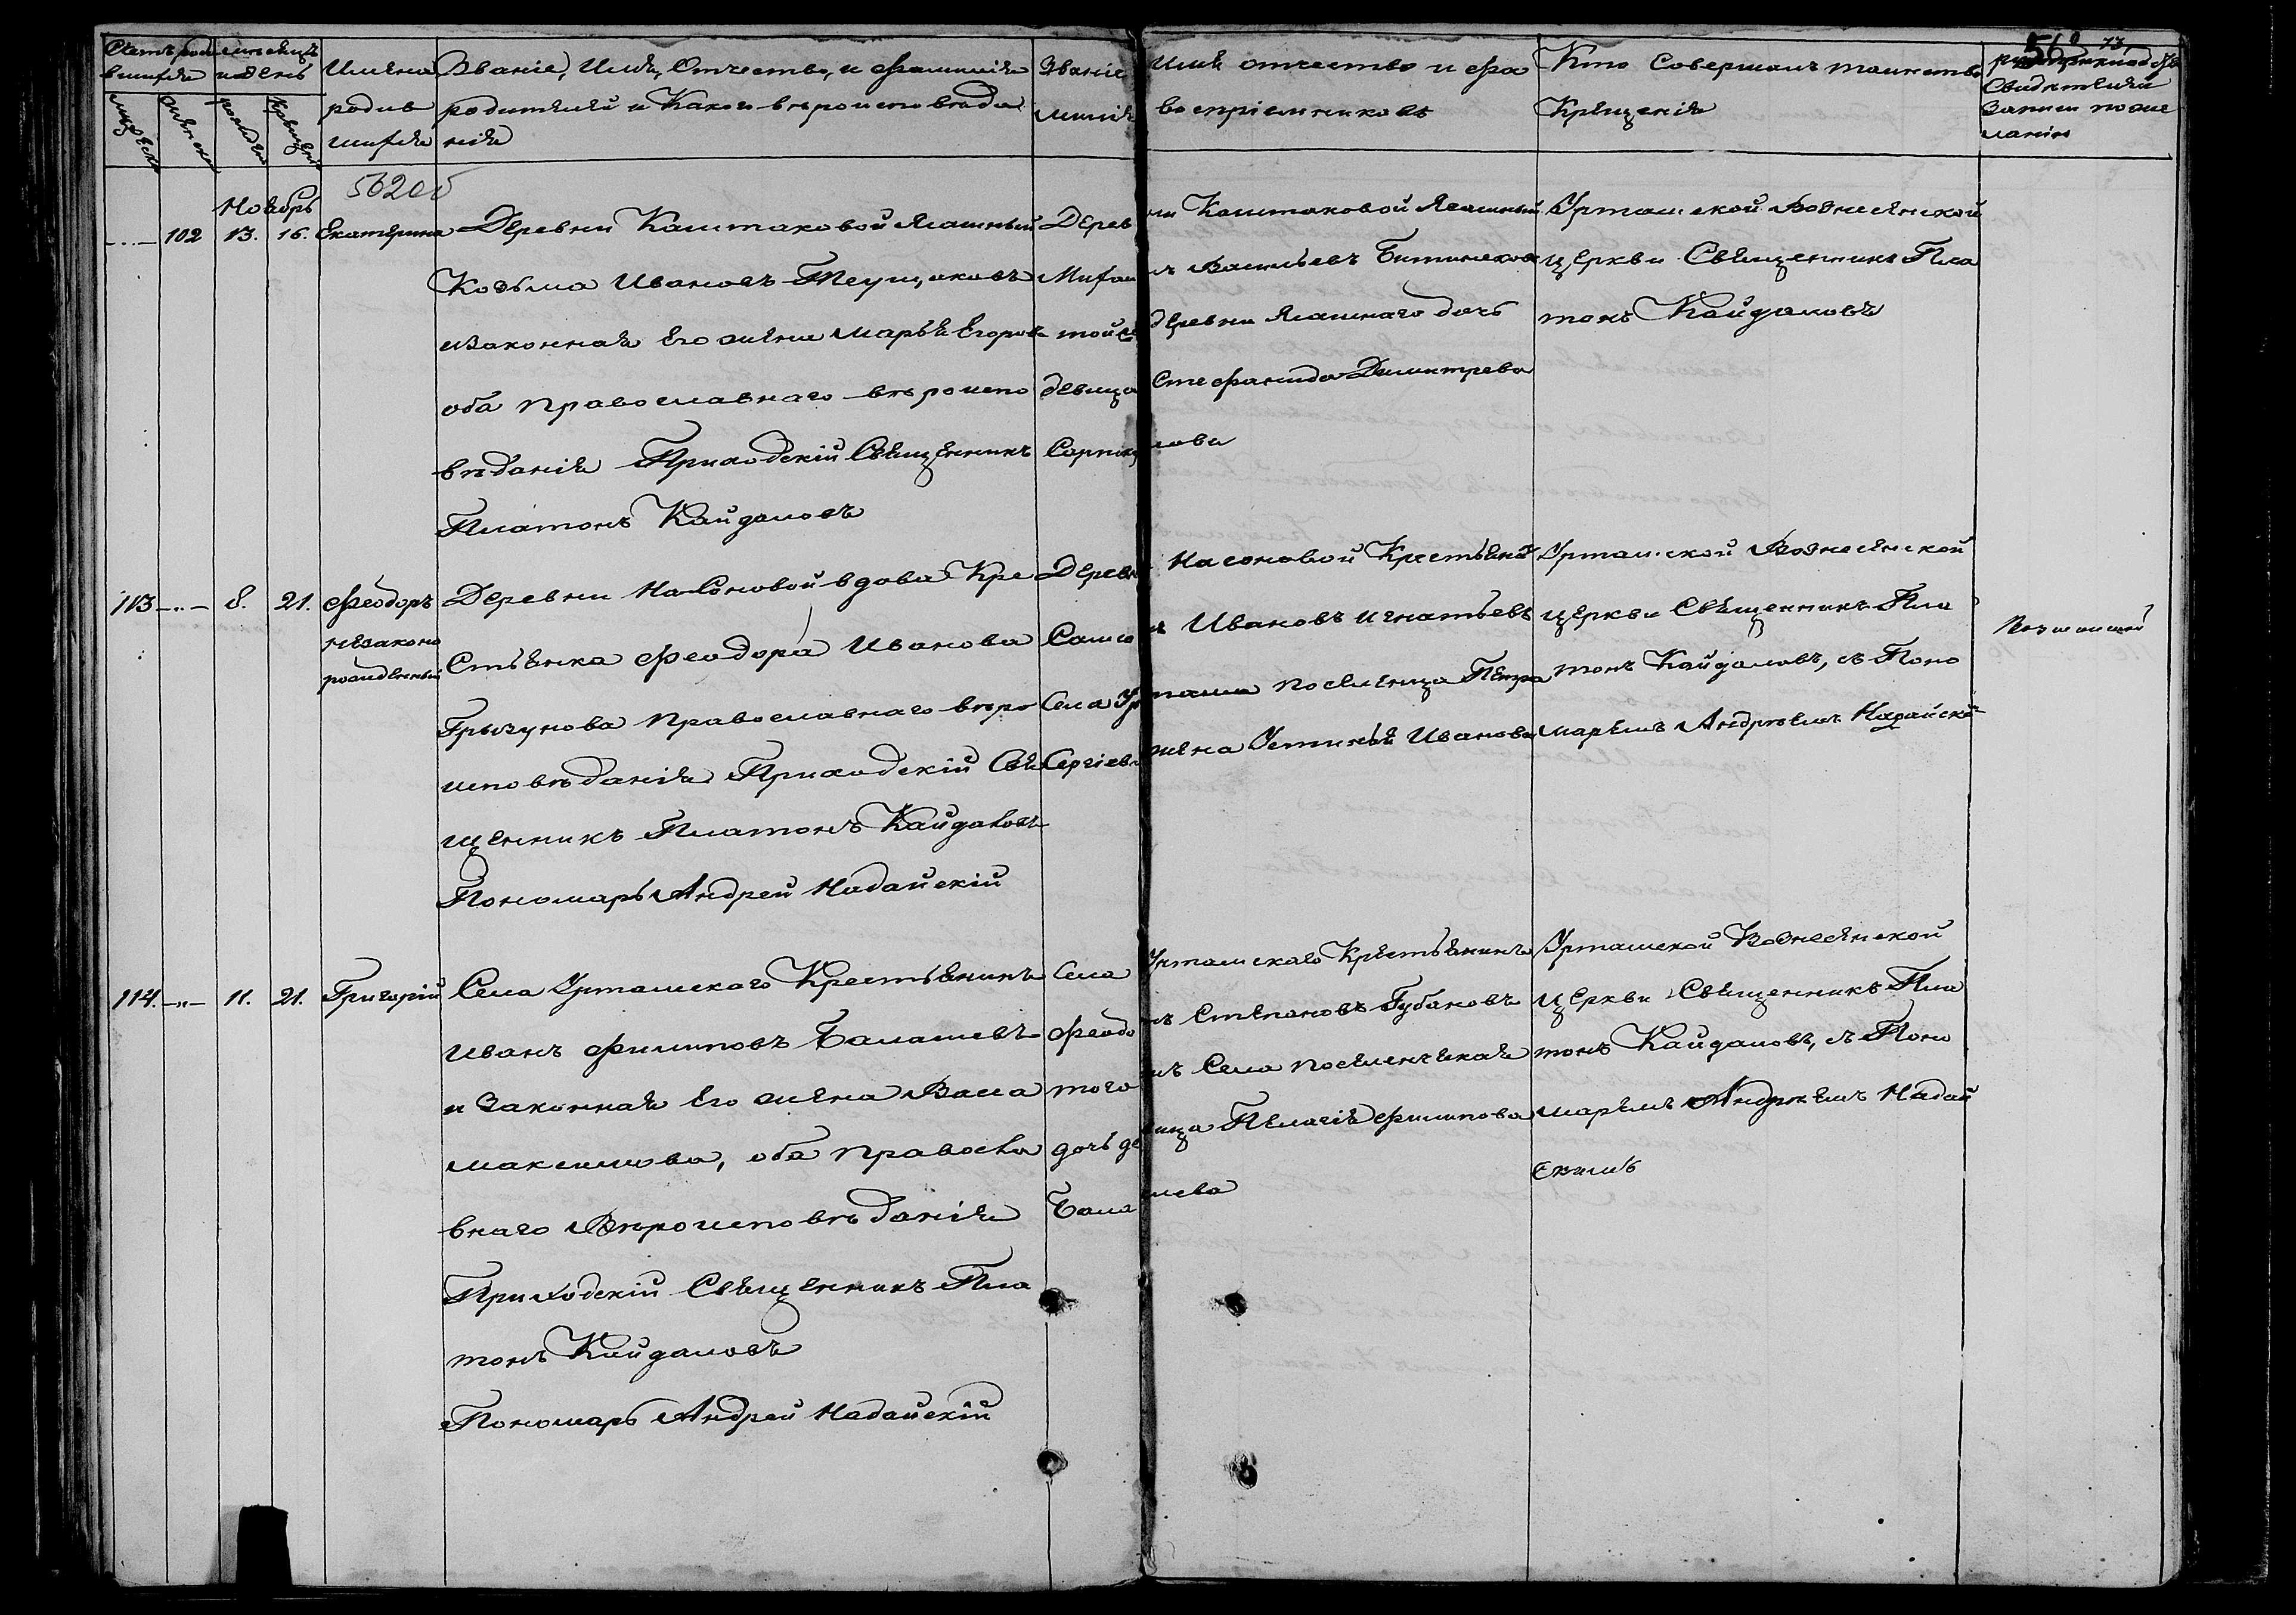 560
73
Счетъ родившихся
мѣсяцъ и день
мужеска
женска
рожденія
крещенія
Имена родившихся
Званіе, Имя, Отчество, и фамилія
родителей и Какого вѣроисповѣда
нія
Званіе Имя отчество и фа
милія воспріемниковъ
Кто Совершалъ таинство
Крещенія
Свидѣтелей
Записи по же
ланію
Ноябрь
102 13. 16. Екатерина
Деревни Каштаковой Ясашный
Козьма Ивановъ Теущаковъ
и законная Его жена Марья Егорова
оба православнаго вѣроиспо
вѣданія Приходскій Священникъ
Платонъ Кайдаловъ
Деревни Каштаковой Ясашный
Васильевъ
той же деревни Ясашнаго дочь
девица Стефанида Димитрева
Урташской Вознесенской
церкви Священникъ Пла
тонъ Кайдаловъ
113 8. 21. Феодоръ
незаконо
рожденный
Деревни Насоновой вдова Кре
стьянка Феодора Иванова
Грызунова православнаго вѣро
исповѣданія Приходскій Свя
щенникъ Платонъ Кайдаловъ
Пономарь Андрей Надайскій
Деревни Насоновой Крестьянинъ
Ивановъ Игнатьевъ
Села Урташа поселенца Петра
Сергіева жена Устинья Иванова
Урташской Вознесенской
церкви Священникъ Пла
тонъ Кайдаловъ, съ Поно
маремъ Андреемъ Надайскимъ
114. 11. 21. Григорій
Села Урташскаго Крестьянинъ
Иванъ Филиповъ Балашевъ
и Законная Его жена Васса
Максимова, оба Правосла
внаго Вѣроисповѣданія
Приходскій Священникъ Пла
тонъ Кайдаловъ
Пономарь Андрей Надайскій
Села Урташскаго Крестьянинъ
Степановъ Губановъ
того Села поселенческая
дочь девица Пелагія Филипова
Балашева
Урташской Вознесенской
церкви Священникъ Пла
тонъ Кайдаловъ, съ Поно
маремъ Андреемъ Надай
скимъ